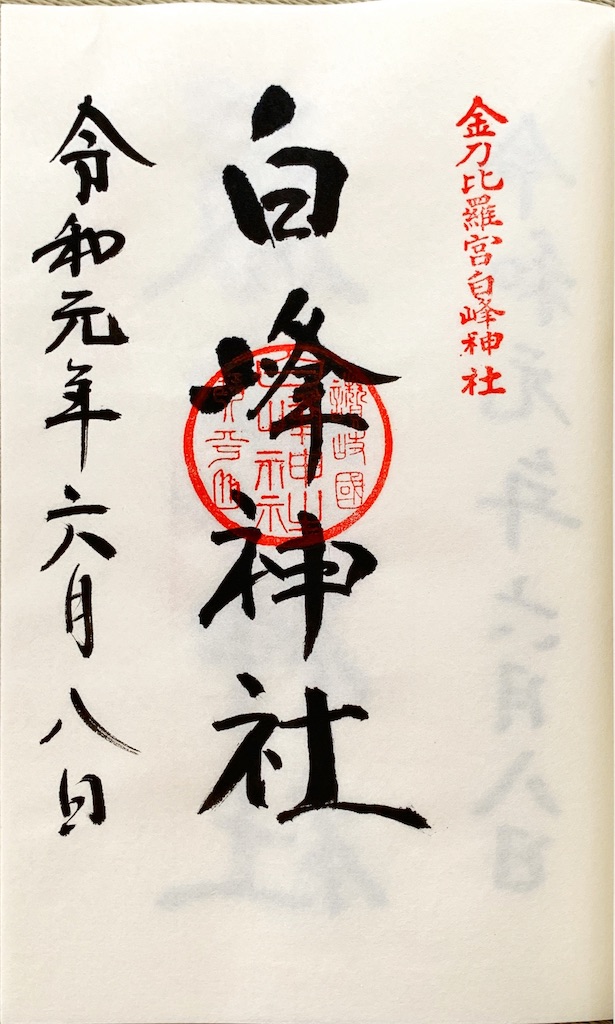 金刀比羅宮白峰神社
白峰神社
讃岐國
白峯神社
令和元年六月八日